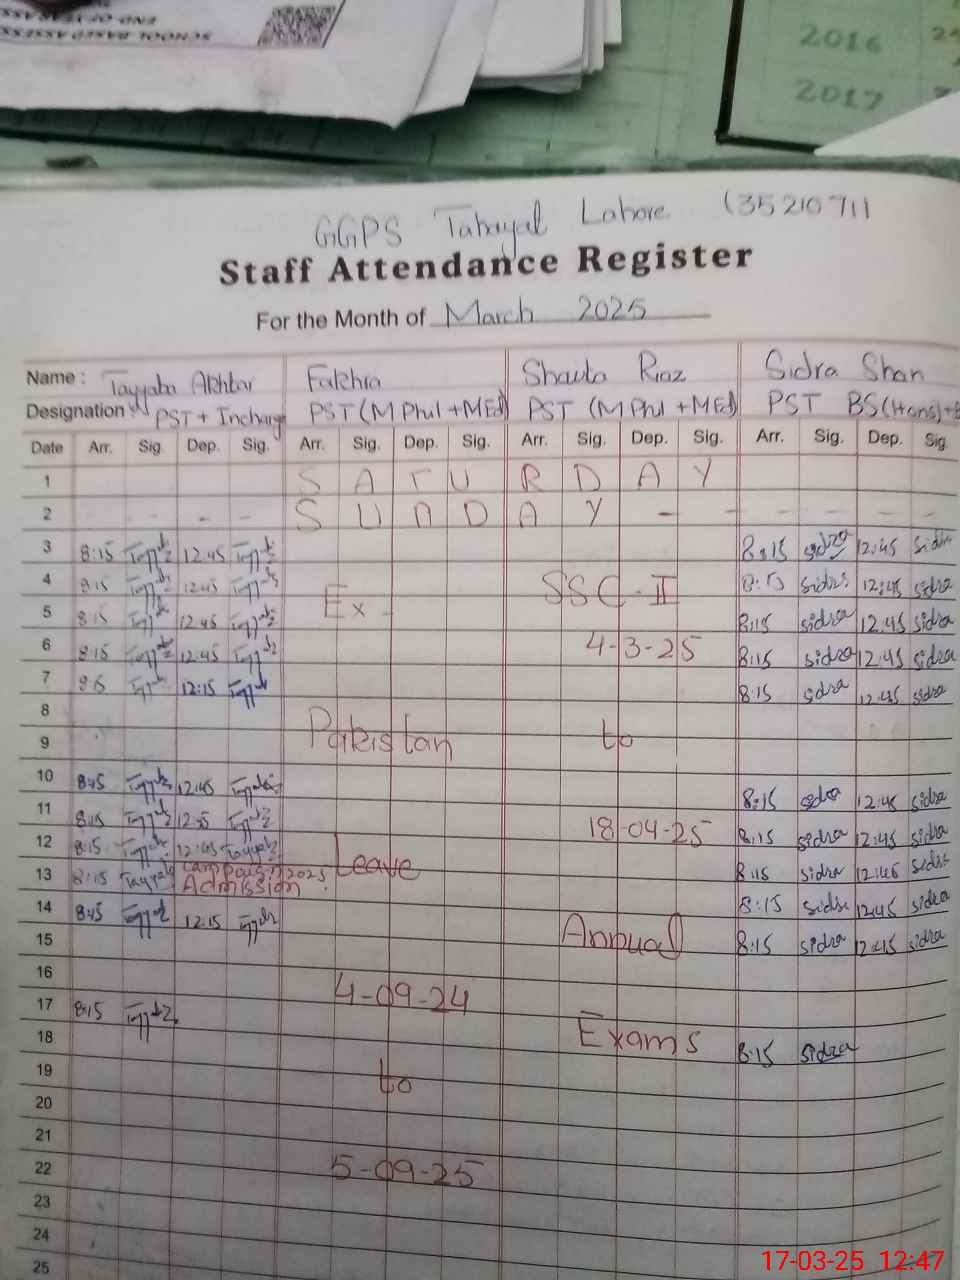 END-OF-YEAR ASS
SCHOOL-BASED ASSESS
2016
2017
GGPS Tahayal Lahore (35210711
Staff Attendance Register
For the Month of March 2025
Name: Tayyaba Akhtar Fakhra Shasta Riaz Sidra Shan
Designation PST + Incharge PST (M Phil + MEd) PST (M Phil + MEd) PST BS(Hons)+B
Date Arr. Sig. Dep. Sig. Arr. Sig. Dep. Sig. Arr. Sig. Dep. Sig. Arr. Sig. Dep. Sig.
1 S A T U R D A Y
2 - - - - S U N D A Y - - - - - -
3 8:15 12:45 8:15 sidra 12:45 sidra
4 8:15 12:45 Ex - SSC-II 8:15 sidra 12:45 sidra
5 8:15 12:45 8:15 sidra 12:45 sidra
6 8:15 12:45 4-3-25 8:15 sidra 12:45 sidra
7 8:15 12:15 8:15 sidra 12:45 sidra
8
9 Pakistan to
10 8:15 12:45 8:15 sidra 12:45 sidra
11 8:15 8:15 sidra 12:45 sidra
12 8:15 12:45 Tayyaba 18-04-25 8:15 sidra 12:45 sidra
13 8:15 Tayyaba Campaign 2025 Admission Leave 8:15 sidra 12:45 sidra
14 8:15 12:15 8:15 sidra 12:45 sidra
15 Annual
16 4-09-24
17 8:15 Exams 8:15 sidra
18
19 to
20
21
22 5-09-25
23
24
25
17-03-25 12:47